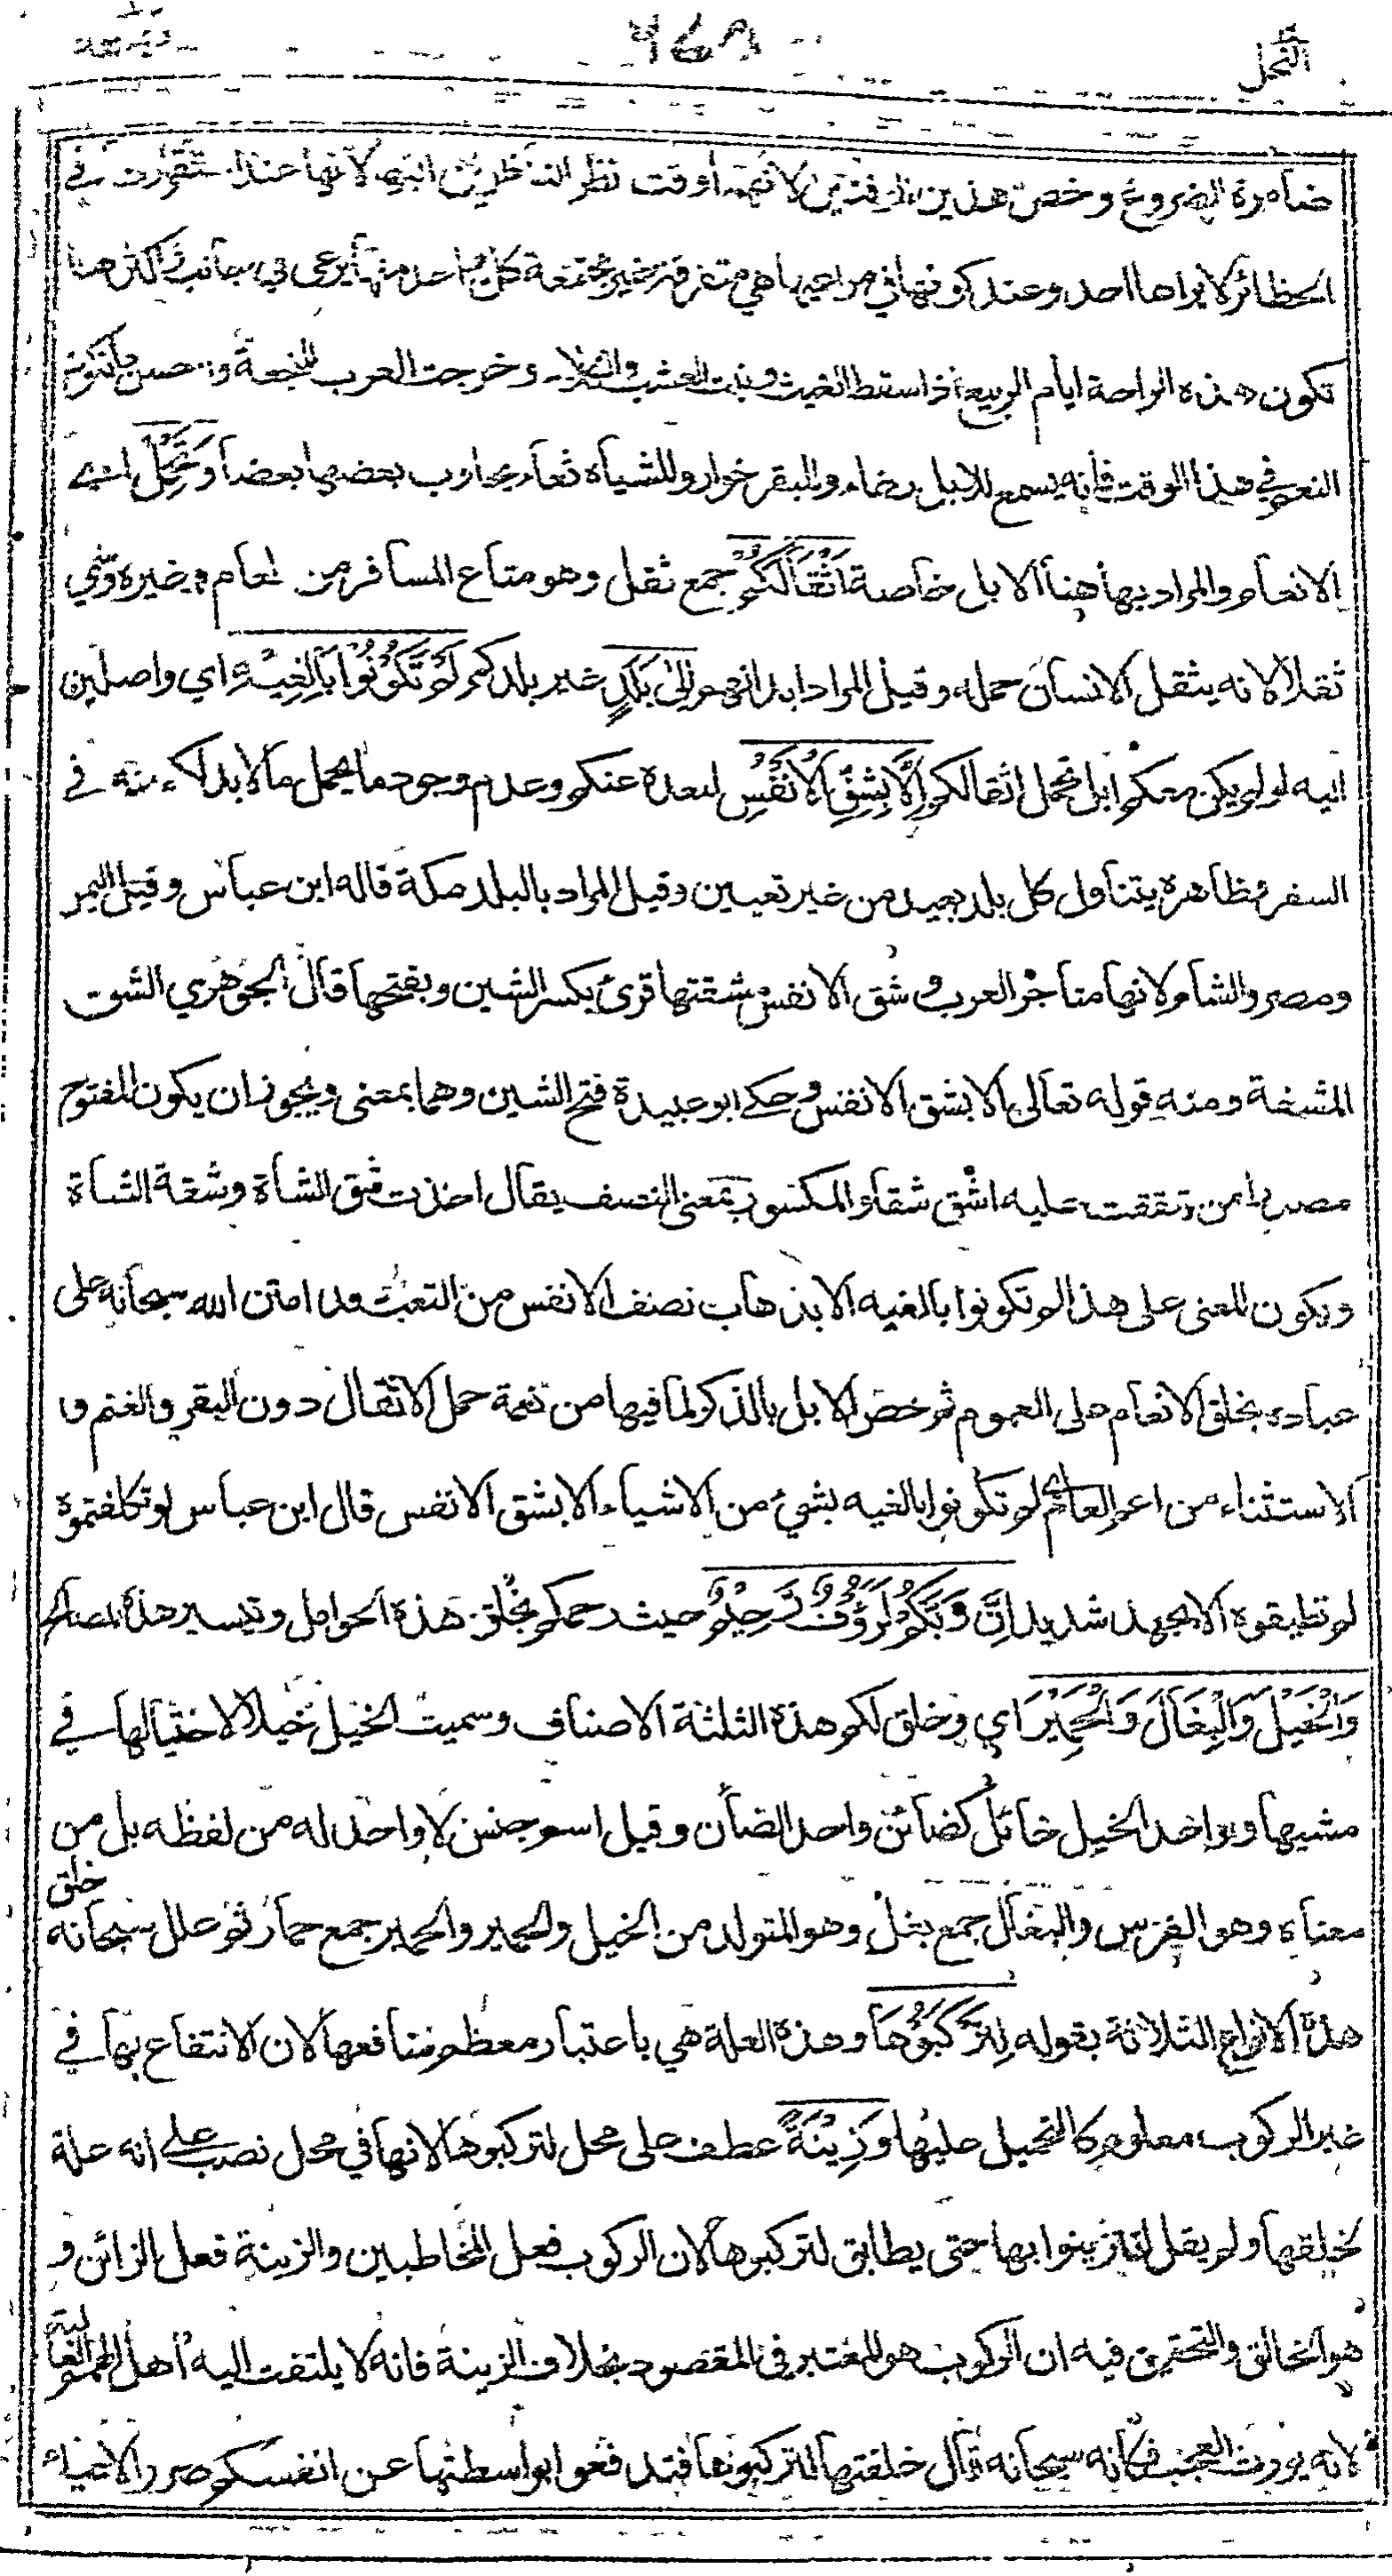 النحل
ضامرة الضروع وخص هذين الوقتين لانهما وقت نظر الناظرين اليها لانها عند استقرارها في
الحظائر لا يراها احد وعند كونها في مراعيها هي متفرقة غير مجتمعة كل واحد منها يرعى في جانب واكثر ما
تكون هذه الراحة ايام الربيع اذا سقط الغيث ونبت العشب والكلاء وخرجت العرب للنجعة واحسن ما تكون
النعم في هذا الوقت فانه يسمع للابل رغاء وللبقر خوار وللشياه ثغاء يجاوب بعضها بعضا وَتَحْمِلُ اي
الانعام والمراد بها هنا الابل خاصة اَثْقَالَكُمْ جمع ثقل وهو متاع المسافر من طعام وغيره وسمي
ثقلا لانه يثقل الانسان حمله وقيل المراد ابدانهم اِلٰى بَلَدٍ غير بلدكم لَمْ تَكُوْنُوْا بَالِغِيْهِ اي واصلين
اليه لو لم يكن معكم ابل تحمل اثقالكم اِلَّا بِشِقِّ الْاَنْفُسِ لبعده عنكم وعدم وجود ما يحمل ما لا بد لكم منه في
السفر وظاهره يتناول كل بلد بعيد من غير تعيين وقيل المراد بالبلد مكة قاله ابن عباس وقيل اليمن
ومصر والشام لانها متاجر العرب و شق الانفس مشقتها قرئ بكسر الشين وبفتحها قال الجوهري الشق
المشقة ومنه قوله تعالى الا بشق الانفس وحكى ابو عبيدة فتح الشين وهما بمعنى ويجوز ان يكون المفتوح
مصدرا من شققت عليه اشق شقا والمكسور بمعنى النصف يقال اخذت شق الشاة وشقة الشاة
ويكون المعنى على هذا لم تكونوا بالغيه الا بذهاب نصف الانفس من التعب وقد امتن الله سبحانه على
عباده بخلق الانعام على العموم ثم خص الابل بالذكر لما فيها من نعمة حمل الاثقال دون البقر والغنم و
الاستثناء من اعم العام اي لم تكونوا بالغيه بشيء من الاشياء الا بشق الانفس قال ابن عباس لو تكلفتموه
لم تطيقوه الا بجهد شديد اِنَّ رَبَّكُمْ لَرَؤُفٌ رَّحِيْمٌ حيث رحمكم بخلق هذه الحوامل وتيسير هذه المصالح
وَالْخَيْلَ وَالْبِغَالَ وَالْحَمِيْرَ اي وخلق لكم هذه الثلثة الاصناف وسميت الخيل خيلا لاختيالها في
مشيها وواحد الخيل خائل كضائن واحد الضأن وقيل اسم جنس لا واحد له من لفظه بل من
معناه وهو الفرس والبغال جمع بغل وهو المتولد من الخيل والحمير والحمير جمع حمار ثم علل سبحانه خلق
هذه الانواع الثلاثة بقوله لِتَرْكَبُوْهَا وهذه العلة هي باعتبار معظم منافعها لان الانتفاع بها في
غير الركوب معلوم كالتحميل عليها وَزِيْنَةً عطف على محل لتركبوها لانها في محل نصب على انه علة
لخلقها ولم يقل لتتزينوا بها حتى يطابق لتركبوها لان الركوب فعل المخاطبين والزينة فعل الزائن و
هو الخالق والتحقيق فيه ان الركوب هو المعتبر في المقصود بخلاف الزينة فانه لا يلتفت اليه اهل الهمم العالية
لانه يورث العجب فكانه سبحانه قال خلقتها لتركبوها فتدفعوا بواسطتها عن انفسكم ضرر الاعياء